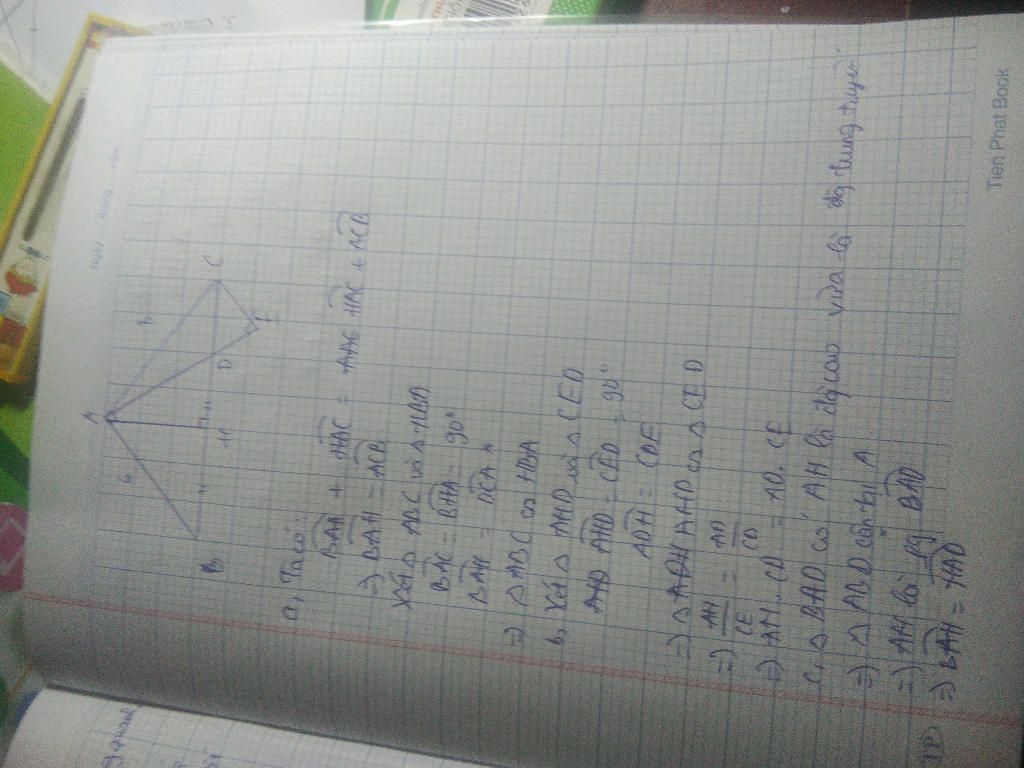 Ngày tháng năm
A
6
8
B
H
D
C
E
a, Ta có:
BAH + HAC = HAC + ACB
=) BAH = ACB
Xét △ ABC và △ HBA
BAC = BHA = 90°
BAH = BCA
=) △ABC ∽ HBA
b, Xét △ AHD và △ CED
AHD = CED = 90°
ADH = CDE
=) △ AHD ∽ △ CED
=) AH/CE = AD/CD
=) AH. CD = AD. CE
C, △ BAD có AH là đg cao vừa là đg trung tuyến
=) △ ABD cân tại A
=) AH là pg BAD
=) BAH = HAD
TP
Tien Phat Book